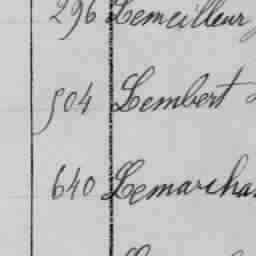 296 Lemeilleur
504 Lembert
640 Lemarcha